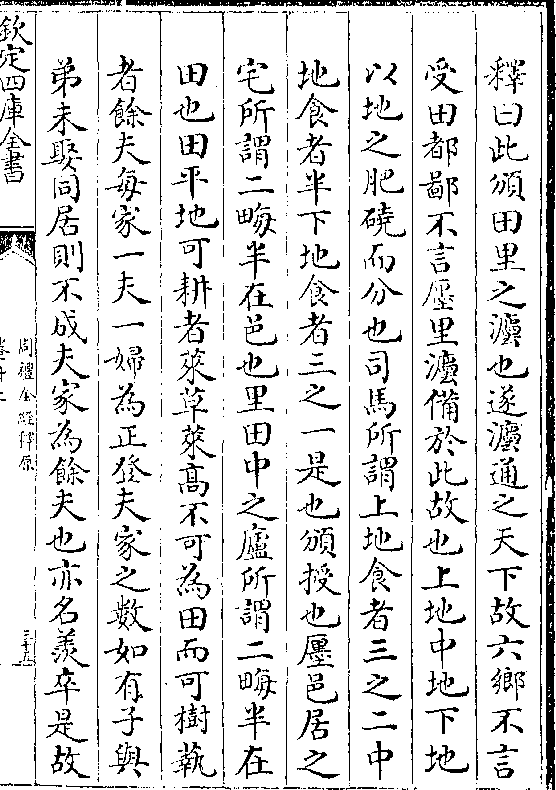 釋曰此頒田里之灋也遂灋通之天下故六鄉不言
受田都鄙不言廛里灋備於此故也上地中地下地
以地之肥磽而分也司馬所謂上地食者三之二中
地食者半下地食者三之一是也頒授也廛邑居之
宅所謂二畮半在邑也里田中之廬所謂二畮半在
田也田平地可耕者萊草萊高不可為田而可樹蓺
者餘夫每家一夫一婦為正登夫家之數如有子與
弟未娶同居則不成夫家為餘夫也亦名羨卒是故
欽定四庫全書
周禮全經釋原
三十五